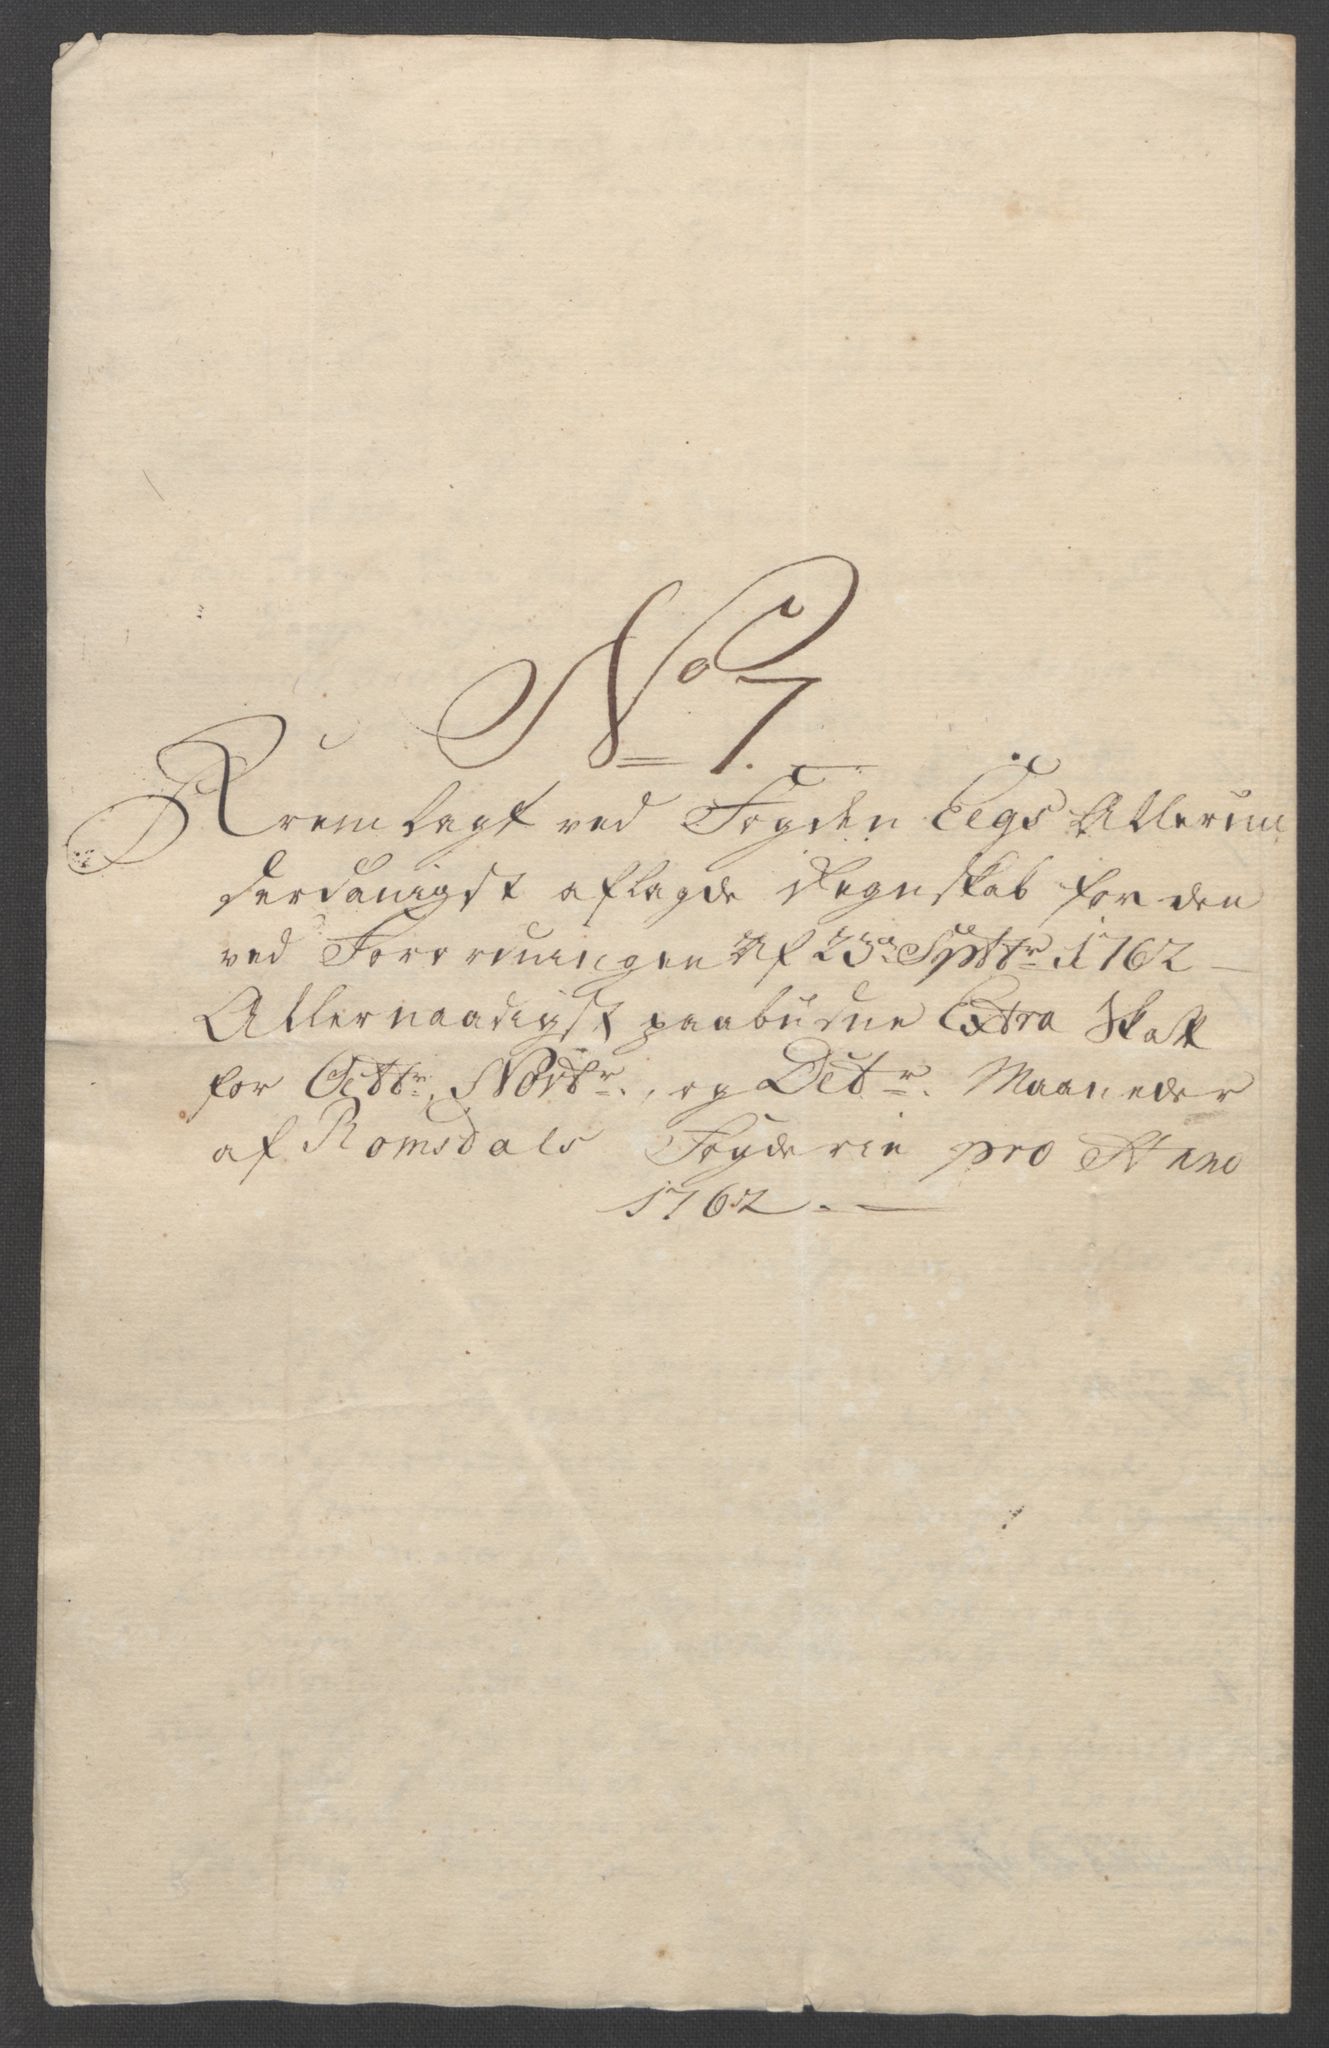 No 7.
Fremlagt ved Fogden Eegs Allerun
derdanigst aflagde Regnskab for den
ved Forordningen Af 23de Septbr 1762
Allernaadigst paabudne Extra Skatt
for Octbr, Novbr., og Decbr. Maaneder
af Romsdals Fogderie pro Anno
1762.